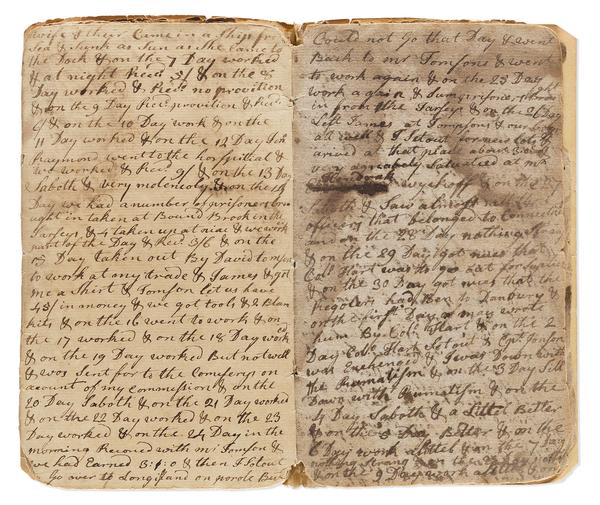 wife & their Came in a Ship from
Sea & Sunk as Sun as She Came to
the Dock & on the 7 Day worked
& at night Recd 3/ & on the 8
Day worked & Recd no provition
& on the 9 Day Recd provition & Recd
9/ & on the 10 Day work & on the
11 Day worked & on the 12 Day
Raymond went to the horspithal &
we worked & Recd 9/ & on the 13 Day
Saboth & very molencoly & on the 14
Day we had a number of prisoners bro
ught in taken at Bound Brook in the
Jarseys & 4 taken up at niac & we work
part of the Day & Recd 3/6 & on the
15 Day taken out By David tomson
to work at my trade & James & got
me a Shirt & Tomson let us have
45/ in money & we got tools & 2 Blan
kits & on the 16 went to work & on
the 17 worked & on the 18 Day worked
& on the 19 Day worked But not well
& was Sent for to the Comeserys on
acount of my Commission & on the
20 Day Saboth & on the 21 Day worked
& on the 22 Day worked & on the 23
Day worked & on the 24 Day in the
morning Reconed with mr Tomson &
we had Earned 3:1:0 & then I Sotout
Go over to Longisland on parole But
Could not Go that Day & went
Back to mr Tomsons & went
to work again & on the 25 Day
work again & Sum prisoners
in from the Jarseys & on the 26 Day
Left James at Tompsons & our
all well & I Sotout for
arived at that place about
very agreabely Saluated at mr
wyckoff & on the 27
Saboth & Saw almost all the
officers that belonged to Connecticut
and on the 28 Day nothing
& on the 29 Day got nues that
Coll Hart was to go Eat for
& on the 30 Day got nues that the
Regolers had Ben to Danbury &
on the first Day of may wrote
hum By Coll Hart & on the 2
Day Coll Hart Sot out & Cpt Jonson
was Exchanged & I was Down with
the Rumatism & on the 3 Day Still
Down with Rumatism & on the
4 Day Saboth & a Littel Better
& on the 5 Day Better & on the
6 Day work a littel & on the 7 Day
nothing Strang & on the 8 Day nothing
& on the 9 Day work a littel & on